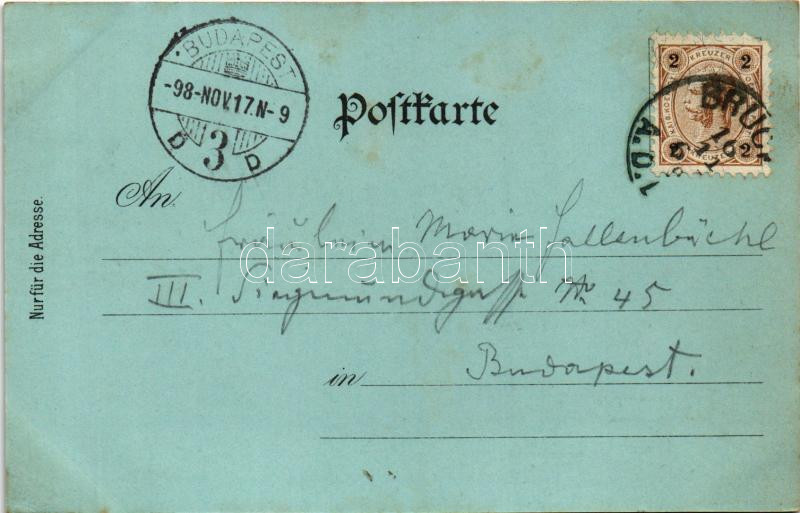 BUDAPEST
-98-NOV.17.N-9
3
D D
Postkarte
2 KREUZER 2
BRUCK
A.D.L
16
11
An
Fräulein Marie Sallenbüchl
darabanth
III. Siegmundgasse No 45
in Budapest.
Nur für die Adresse.